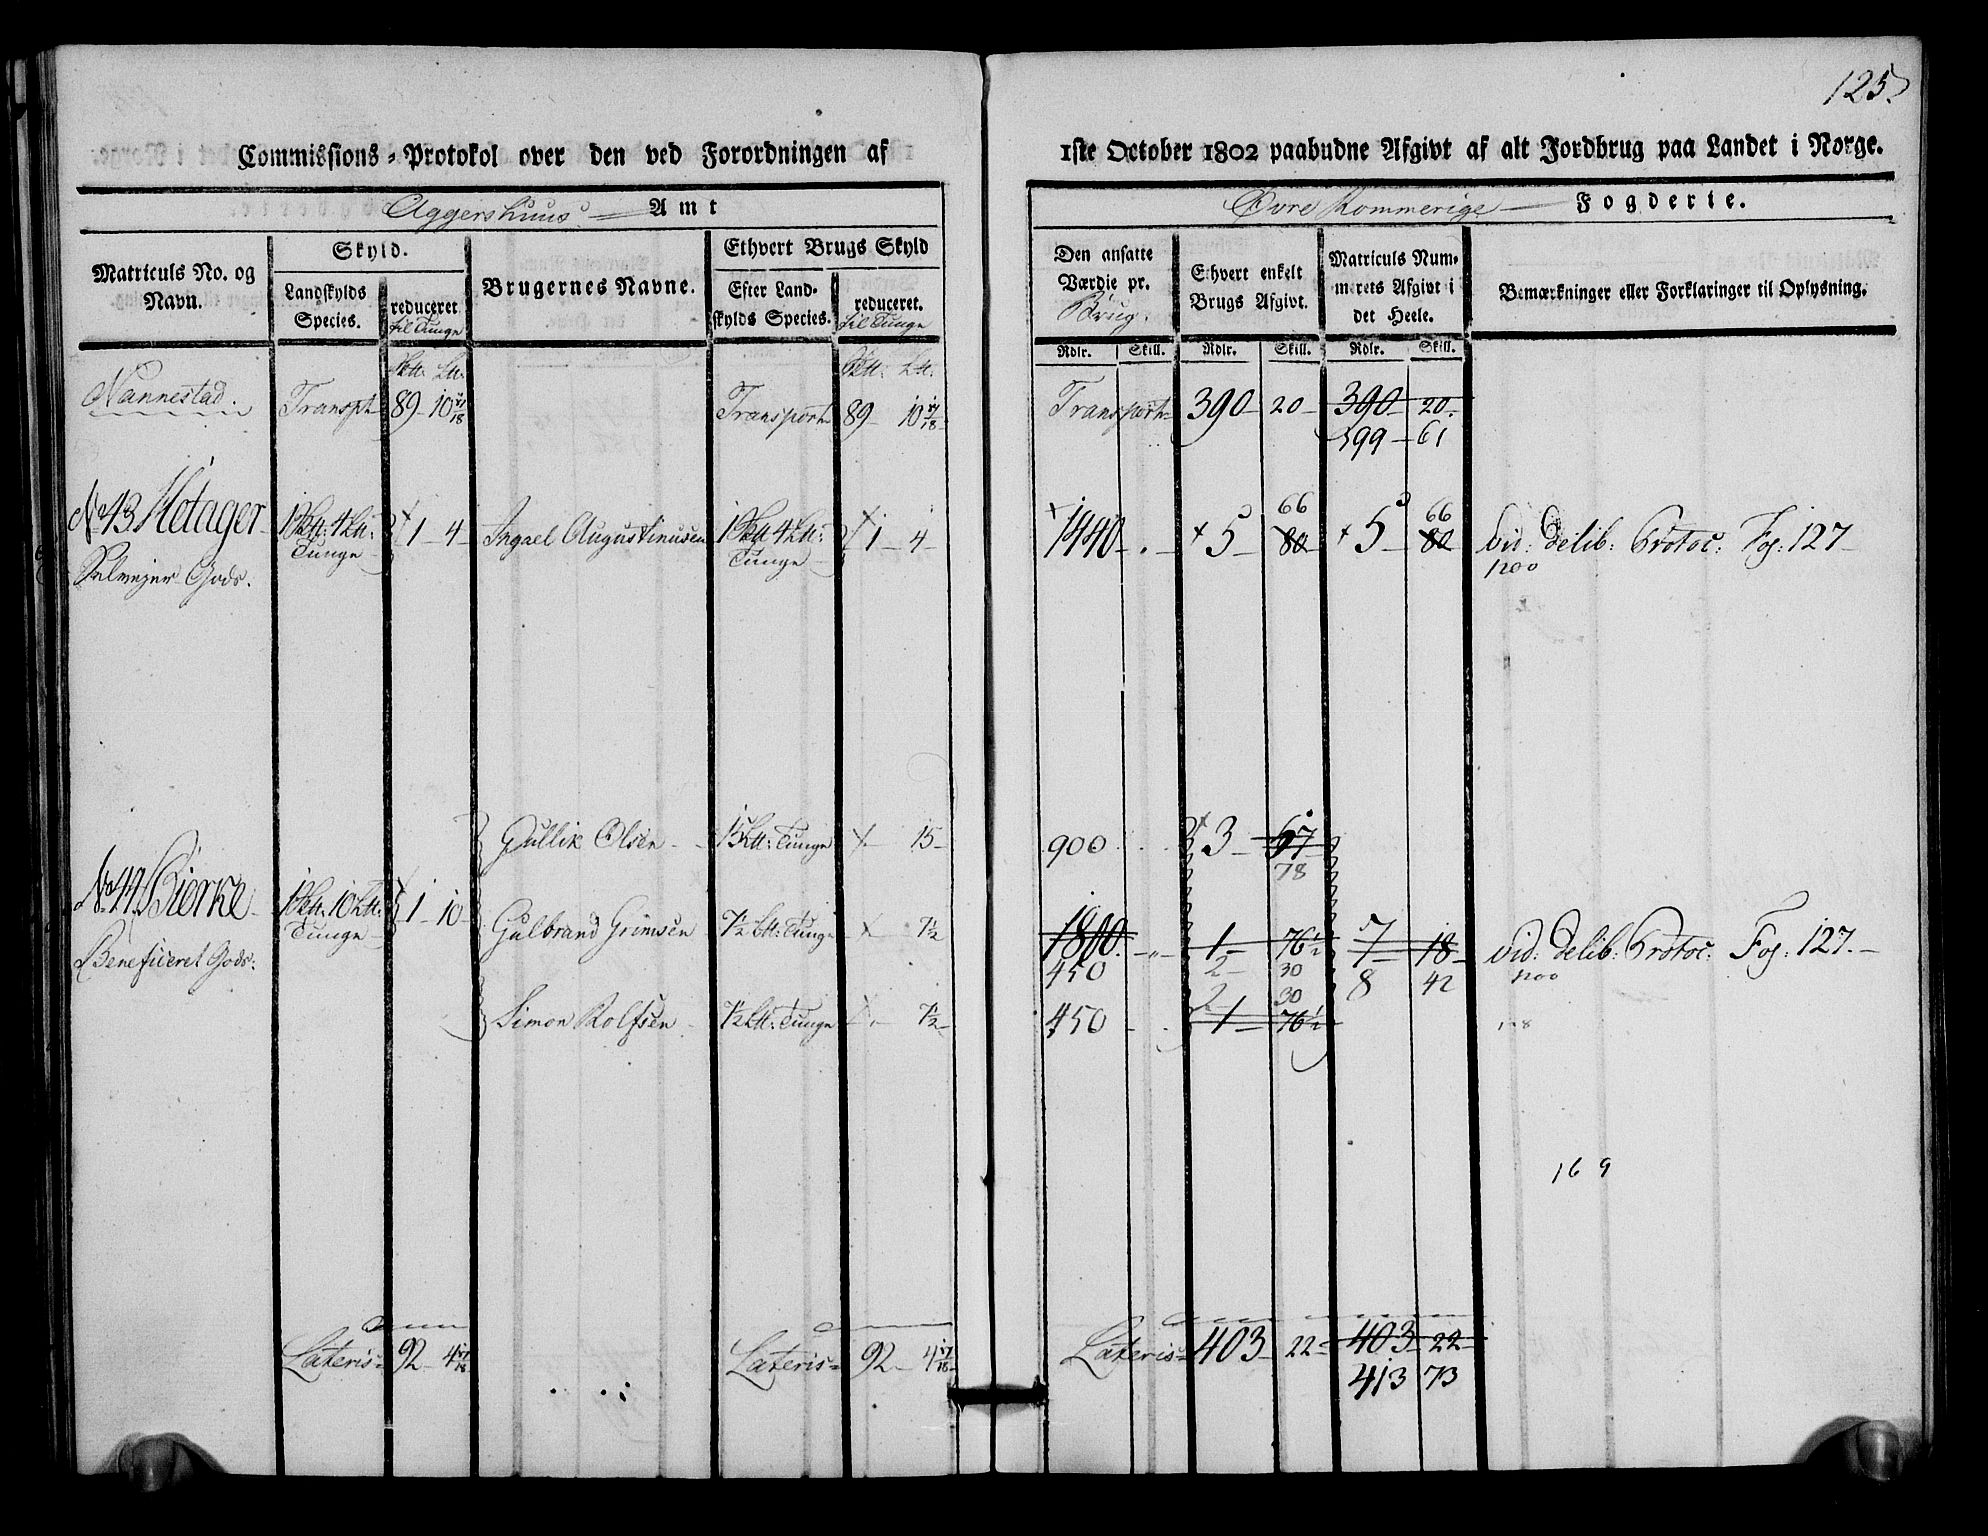 125.
Commissions-Protokol over den ved Forordningen af 1ste October 1802 paabudne Afgivt af alt Jordbrug paa Landet i Norge.
Aggershuus Amt
Øvre Rommerige Fogderie.
Matriculs No. og Navn.
Skyld.
Landskylds Species.
reduceret til Tunge
Brugernes Navne.
Ethvert Brugs Skyld
Efter Landskylds Species.
reduceret. til Tunge
Den ansatte Værdie pr. Brug.
Ethvert enkelt Brugs Afgivt.
Matriculs Nummerets Afgivt i det Heele.
Bemærkninger eller Forklaringer til Oplysning.
Rdlr. Skill. Rdlr. Skill. Rdlr. Skill.
Nannestad. Transpt 89 - 10 17/18 Transport 89 - 10 17/18 Transport 390 - 20 - 390 - 20.
399 - 61
No 43 Motager 1 4 Tunge 1 - 4 - Ingael Augustinusen 1 4 Tunge 1 - 4 - 1440 - 5 - 80 5 - 80 Vid: Delib: Protoc: Fog: 127 -
66 66
Selvejer Gods. 1200
Gullik Olsen 15 Tunge 15 - 900 3 - 67
78
No 44 Bierke 1 10 Tunge 1 - 10 - Gulbrand Grimsen 7½ Tunge 7½ 1800. 1 - 76½ 7 - 18 - Vid: Delib: Protoc: Fog: 127. -
Beneficeret Gods. 450 2 - 30 8 42 1200
Simon Rolfsen 7½ Tunge 7½ 450 1 - 76½
2 - 30
16 9
Lateris 92 - 4 17/18 Lateris 92 - 4 17/18 Lateris 403 - 22 403 - 22 -
413 73